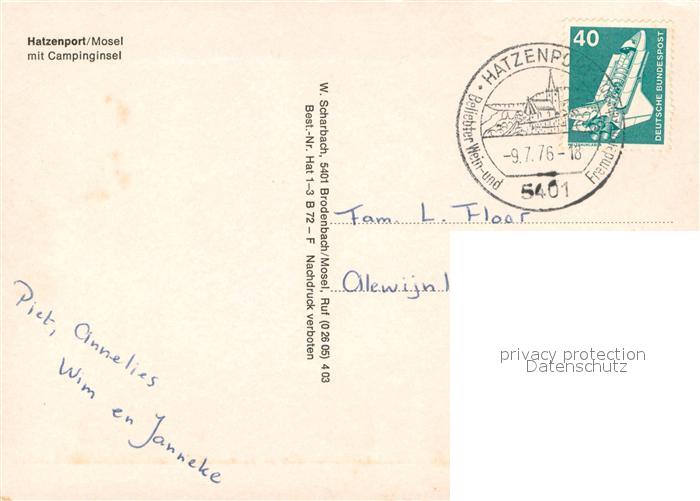 Hatzenport/Mosel
mit Campinginsel
W. Scharbach, 5401 Brodenbach/Mosel, Ruf (0 26 05) 4 03
Best.-Nr. Hat 1–3 B 72 – F Nachdruck verboten
40
DEUTSCHE BUNDESPOST
• HATZENPO
Beliebter Wein-und
Fremde
-9.7.76-18
5401
Fam. L. Floor
Alewijn
Piet, Annelies
Wim en Janneke
privacy protection
Datenschutz